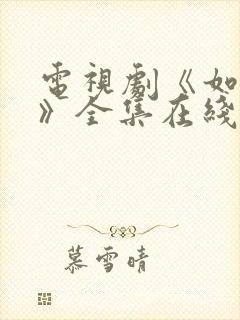 電視劇《如
》全集在綫
慕雪晴